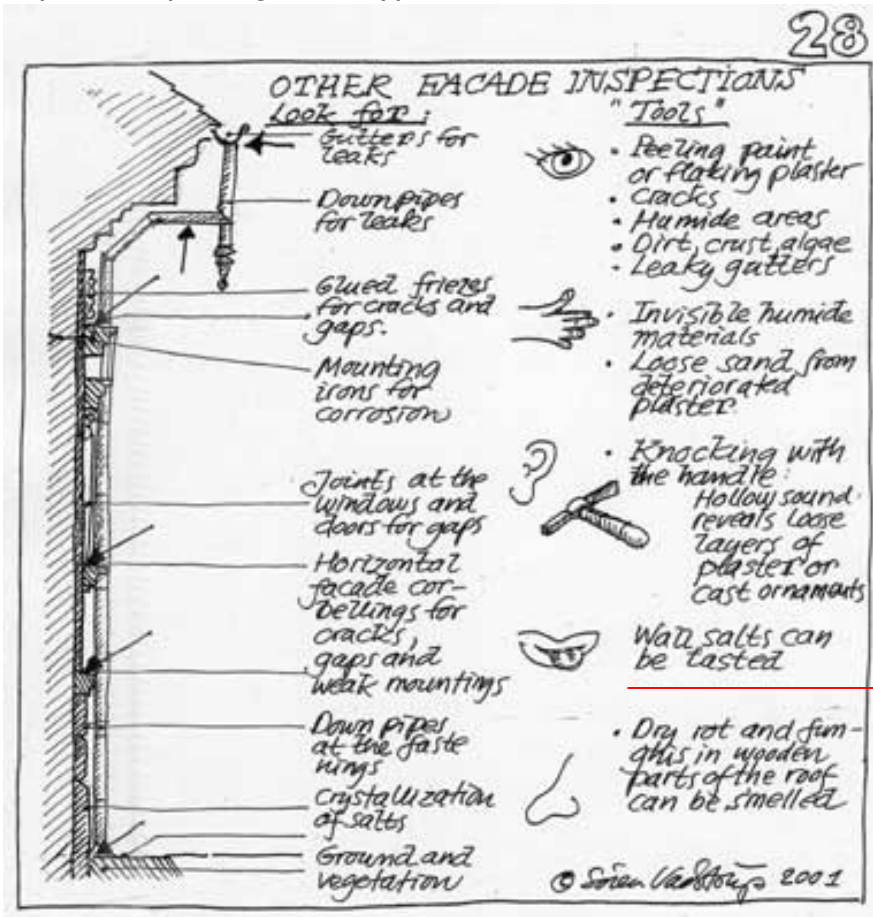 28
OTHER FACADE INSPECTIONS
Look for:
Gutters for
leaks
Downpipes
for leaks
Glued friezes
for cracks and
gaps.
Mounting
irons for
corrosion
Joints at the
windows and
doors for gaps
Horizontal
facade cor-
bellings for
cracks,
gaps and
weak mountings
Down pipes
at the faste
nings
Crystallization
of salts
Ground and
vegetation
"Tools"
• Peeling paint
or flaking plaster
• Cracks
• Humide areas
• Dirt, crust, algae
• Leaky gutters
• Invisible humide
materials
• Loose sand from
deteriorated
plaster.
• Knocking with
the handle:
Hollow sound
reveals loose
layers of
plaster or
cast ornaments
Wall salts can
be tasted
• Dry rot and fun-
ghis in wooden
parts of the roof
can be smelled
© Søren Vadstrup 2001